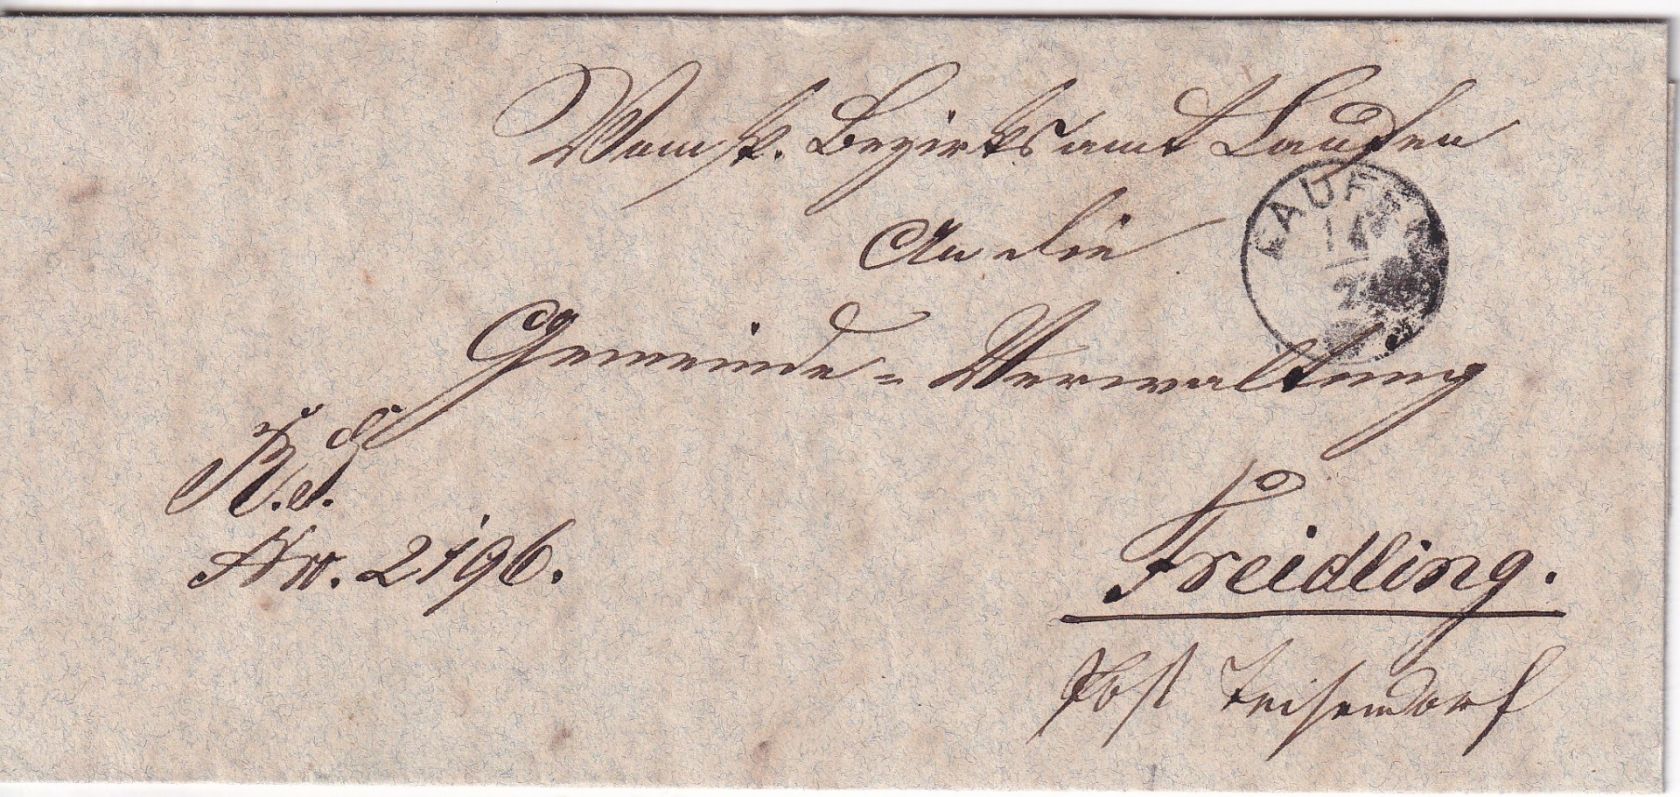 Vom k. Bezirksamt Laufen
LAUFEN
14
2
An die
Gemeinde-Verwaltung
R.S.
No. 2196.
Freidling.
Post Teisendorf